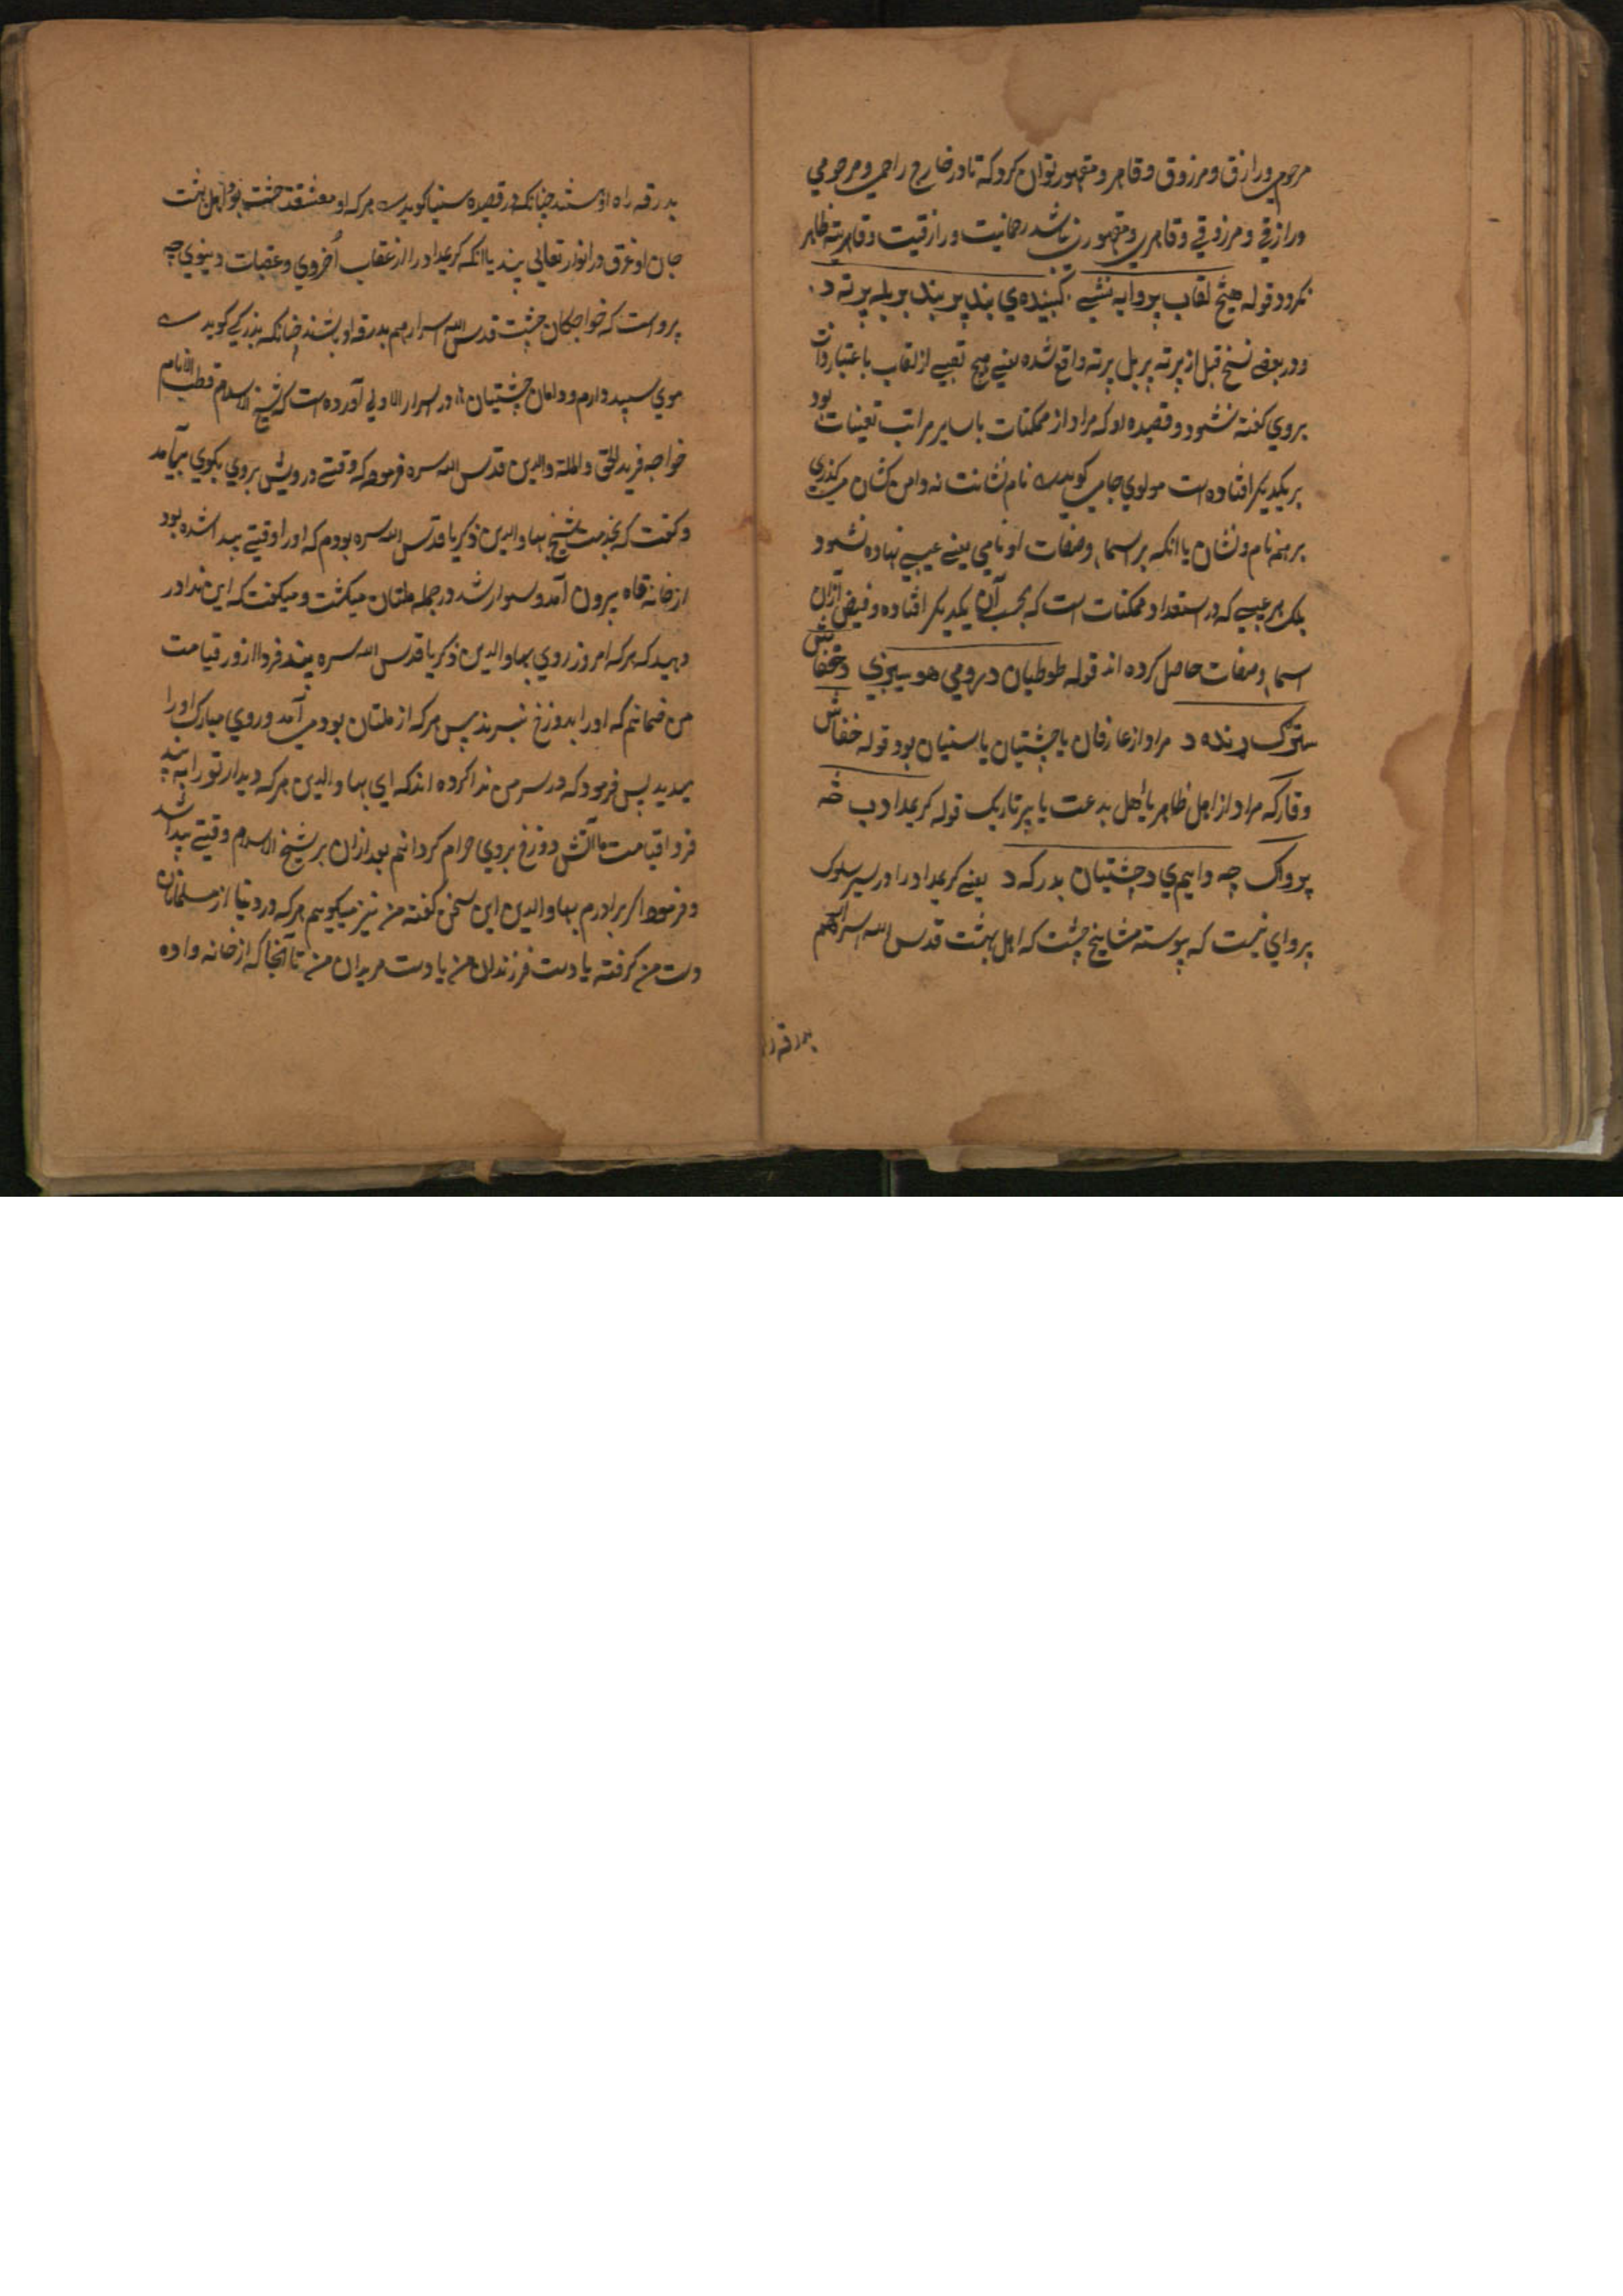 مرحوم و رازق و مرزوق و قاهر و مقهور توان کرد که تا در خارج راحمی و مرحومی
و رازقی و مرزوقی و قاهری و مقهوری نباشد رحمانیت و رازقیت و قاهریته ظاهر
نکردد قوله هیڅ لقاب پر وا به نشي کښېنده ي بند پر بند پر بله پر ته د
و در بعضی نسخ قبل از پرته پر بل پرته واقع شده یعنی هیچ تعیی از لقاب باعتبار ذات
بروی گفته نشود و قصیده او که مراد از ممکنات با سایر مراتب تعینات بود
بر یکدیگر افتاده است مولوی جامی گوید نام نشانت نه و دامن کشان میگذری
بر همه نام و نشان یا انکه بر اسما و صفات او نامی یعنی عیبی نهاده نشود
بلک هر عیبی که در استعداد ممکنات است که بحسب آن یکدیگر افتاده و فیض ازان
اسما و صفات حاصل کرده اند قوله طوطیان د رومی هو سیږي د خفاش
ستوک رنده د مراد از عارفان یا چشتیان یا سنیان بود قوله خفاش
و قارکه مراد از اهل ظاهر یا اهل بدعت یا پیر تاریک قوله کریمداد ب څه
پرواک چه وایم ي د چشتیان بدرکه د یعنی کریمداد را در سیر سلوک
پروای نیست که پیوسته مشایخ چشت که اهل بهشت قدس الله اسرارهم
بدرقه
بدرقه راه او شند چنانکه در قصیده سنیا کوید هر که او معتقد چشت بود اهل بهشت
جان او غرق در انوار تعالی بیند یا انکه کریمداد را از عقاب اخروی و عقبات دنیوی چه
پرواست که خواجکان چشت قدس الله اسرارهم بدرقه او بشند چنانکه بزرکی کوید
موی سپید دارم و دامان چشتیان در اسرار الاولی آورده است که شیخ الاسلام قطب الانام
خواجه فرید الحق والملة والدین قدس الله سره فرموده که وقتی درویش بروی بکوی برآمد
و کفت که بخدمت شیخ بهاوالدین ذکریا قدس الله سره بودم که او را وقتی پیدا شده بود
از خانه قاه بیرون آمد و سوار شد در جمله ملتان میکشت و میکفت که این ندا در
دهید که هر که امروز روی بهاوالدین ذکریا قدس الله سره بیند فردا از ور قیامت
من ضمانم که او را بدوزخ نبرند پس هر که از ملتان بود می آمد و روی مبارک او را
بدید پس فرمود که در سر من ندا کرده اند که ای بهاوالدین هر که دیدار تو را به بیند
فردا قیامت ما آتش دوزخ بروی حرام کردانیم بعد ازان بر شیخ الاسلام وقتی پیدا شد
و فرمود اکر برادرم بهاوالدین این سخن کفته من نیز میکویم هر که در دنیا از مسلمانان
دست من کرفته یا دست فرزندان من یا دست مریدان من تا آنجا که از خانه واده